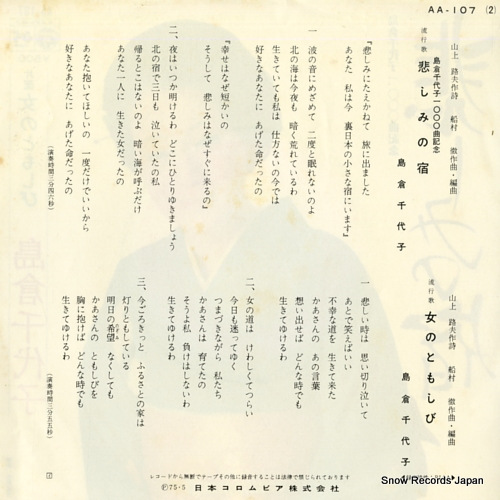 AA-107 (2)
山上 路夫作詩 船村 徹作曲・編曲
島倉千代子一〇〇〇曲記念
流行歌 悲しみの宿
島倉千代子
『悲しみにたえかねて 旅に出ました
あなた 私は今 裏日本の小さな宿にいます』
一 波の音にめざめて 二度と眠れないのよ
北の海は今夜も 暗く荒れているわ
生きていても私は 仕方ないの今では
好きなあなたに あげた命だったの
『幸せはなぜ短かいの
そうして 悲しみはなぜすぐに来るの』
二、夜はいつか明けるわ どこにひとりゆきましょう
北の宿で三日も 泣いていたの私
帰るとこはないのよ 暗い海が呼ぶだけ
あなた一人に 生きた女だったの
あなた抱いてほしいの 一度だけでいいから
好きなあなたに あげた命だったの
(演奏時間三分四六秒)
山上 路夫作詩 船村 徹作曲・編曲
流行歌 女のともしび
島倉千代子
一 悲しい時は 思い切り泣いて
あとで笑えばいい
不幸な道を 生きて来た
かあさんの あの言葉
想い出せば どんな時でも
生きてゆけるわ
二、女の道は けわしくてつらい
今日も迷ってゆく
つまづきながら 私たち
かあさんは 育てたの
そうよ私 負けはしないわ
生きてゆけるわ
三、今ごろきっと ふるさとの家は
灯りともしている
明日の希望 なくしても
かあさんの ともしびを
胸に抱けば どんな時でも
生きてゆけるわ
(演奏時間三分五五秒)
レコードから無断でテープその他に録音することは法律で禁じられております
Ⓟ75・5 日本コロムビア株式会社
Snow Records Japan
www.snowrecords.jp